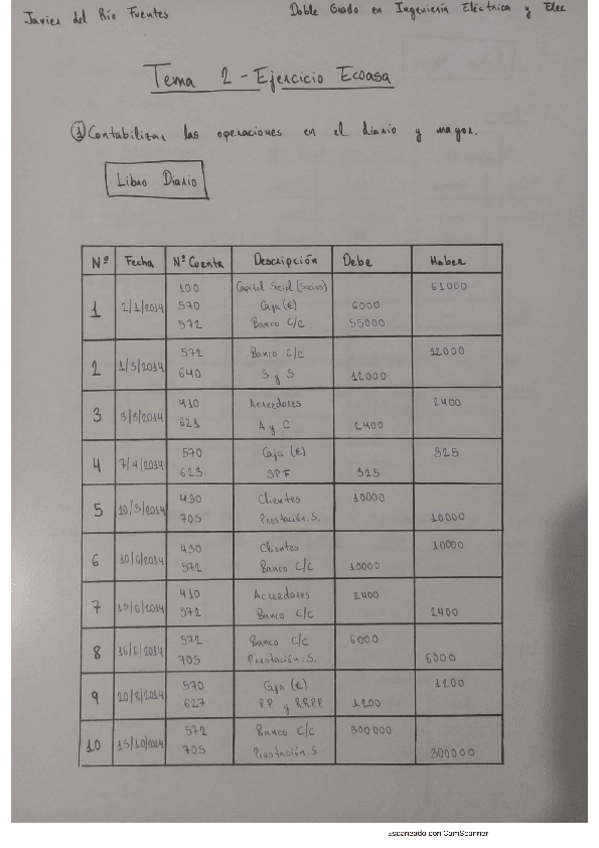 Javier del Río Fuentes Doble Grado en Ingeniería Eléctrica y Elec
Tema 2 - Ejercicio Ecoasa
① Contabilizar las operaciones en el diario y mayor.
Libro Diario
Nº Fecha Nº Cuenta Descripción Debe Haber
100 Capital Social (Socios) 61000
1 2/1/2014 570 Caja (€) 6000
572 Banco C/C 55000
572 Banco C/C 12000
2 1/3/2014 640 S y S 12000
410 Acreedores 2400
3 3/3/2014 621 A y C 2400
570 Caja (€) 325
4 7/4/2014 623 SPF 325
430 Clientes 10000
5 10/5/2014 705 Prestación.S. 10000
430 Clientes 10000
6 10/6/2014 572 Banco C/C 10000
410 Acreedores 2400
7 15/6/2014 572 Banco C/C 2400
572 Banco C/C 6000
8 16/6/2014 705 Prestación.S. 6000
570 Caja (€) 1200
9 20/8/2014 627 P.P. y RRPP 1200
572 Banco C/C 300000
10 15/10/2014 705 Prestación.S 300000
Escaneado con CamScanner